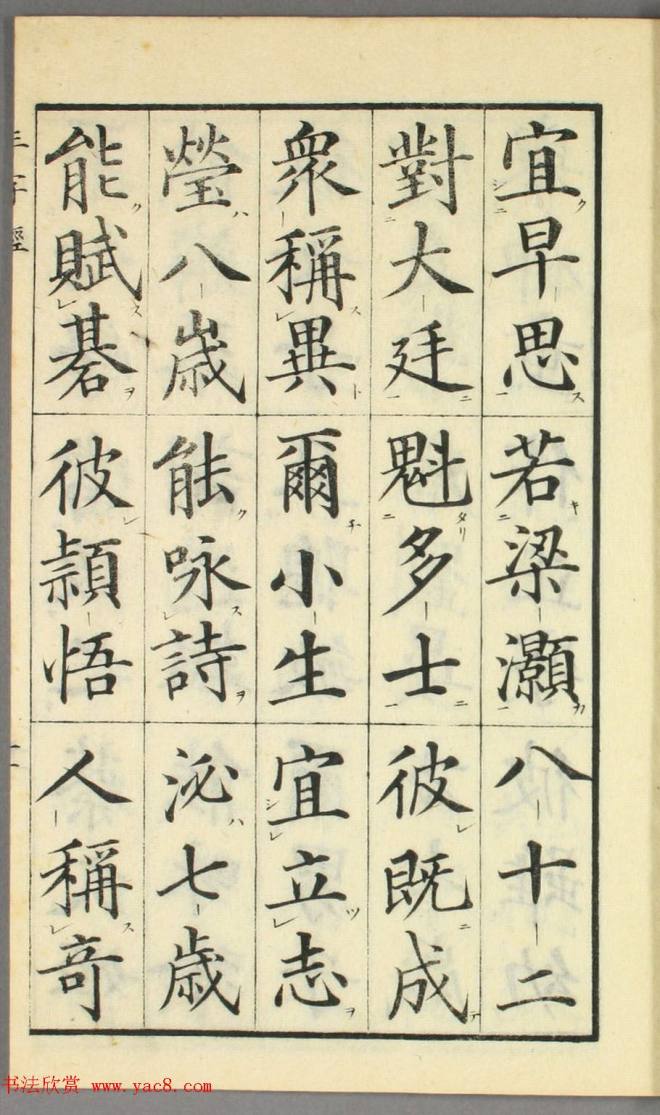 宜早思 若梁灝 八十二
對大廷 魁多士 彼既成
衆稱異 爾小生 宜立志
瑩八歳 能咏詩 泌七歳
能賦碁 彼頴悟 人稱奇
三字經
書法欣赏 www.yac8.com